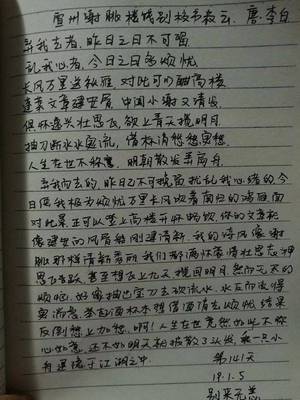 宣州谢朓楼饯别校书叔云 唐·李白
弃我去者,昨日之日不可留
乱我心者,今日之日多烦忧
长风万里送秋雁,对此可以酣高楼
蓬莱文章建安骨,中间小谢又清发
俱怀逸兴壮思飞,欲上青天揽明月
抽刀断水水更流,
人生在世不称意,明朝散发弄扁舟
弃我而去的,昨日已不可挽留 扰乱我心绪的,今
日使我极为烦忧 万里长风吹着南归的鸿雁面
对此景正可以登上高楼开怀畅饮,你的文章犹
像建安的风骨 刚健清新,我的 风像谢
朓那样清新秀丽 我们都满怀豪情壮志
思飞 甚至想飞上九天揽回明月 然而无尽的
烦恼呢,好像抽出宝刀去砍流水,水反而流得
更 举起酒杯本想借酒消去烦忧 结果
反倒愁上加愁.啊!人生在世竟然如此不称
心如意,还不如明天 披散了头发,乘一只小
舟 于江湖之中.
第141天
19.1.5
别来无恙